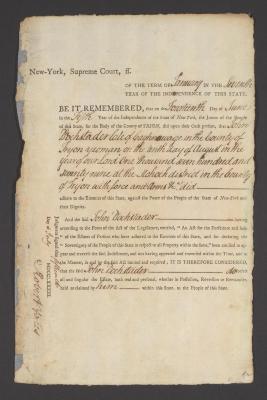 New-York, Supreme Court, ss.
OF THE TERM OF January IN THE Seventh
YEAR OF THE INDEPENDENCE OF THIS STATE.
BE IT REMEMBERED, that on the Day of June
in the Fifth Year of the Independence of the State of New-York, the Jurors of the People
of this State, for the Body of the County of TRYON, did upon their Oath present, that John
Dochstader late of in the County of
Tryon yeoman on the tenth Day of August in the
year of our Lord One thousand seven hundred and
seventy nine at the district in the County
of Tryon with force and arms &c did
adhere to the Enemies of this State, against the Peace of the People of the State of New-York and
their Dignity.
And the said John Dochstader having
according to the Form of the Act of the Legislature, entitled, "An Act for the Forfeiture and Sale
"of the Estates of Persons who have adhered to the Enemies of this State, and for declaring the
"Sovereignty of the People of this State in respect to all Property within the same," been notified to appear
and traverse the said Indictment, and not having appeared and traversed within the Time, and in
the Manner, in and by the said Act limited and required; IT IS THEREFORE CONSIDERED,
that the said John Dochstader do forfeit
all and singular the Estate, both real and personal, whether in Possession, Reversion or Remainder,
held or claimed by him within this State, to the People of this State.
MDCCLXXXIII.
Day of July